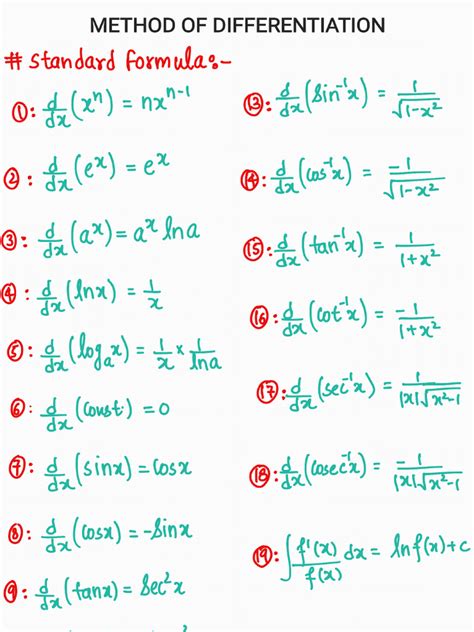 METHOD OF DIFFERENTIATION
# Standard formula:-
①: d/dx (xⁿ) = nxⁿ⁻¹
②: d/dx (eˣ) = eˣ
③: d/dx (aˣ) = aˣ lna
④: d/dx (lnx) = 1/x
⑤: d/dx (logₐx) = 1/x × 1/lna
⑥: d/dx (const.) = 0
⑦: d/dx (sinx) = cosx
⑧: d/dx (cosx) = -sinx
⑨: d/dx (tanx) = sec²x
⑬: d/dx (sin⁻¹x) = 1/√(1-x²)
⑭: d/dx (cos⁻¹x) = -1/√(1-x²)
⑮: d/dx (tan⁻¹x) = 1/(1+x²)
⑯: d/dx (cot⁻¹x) = -1/(1+x²)
⑰: d/dx (sec⁻¹x) = 1/(|x|√(x²-1))
⑱: d/dx (cosec⁻¹x) = -1/(|x|√(x²-1))
⑲: ∫ f'(x)/f(x) dx = ln f(x) + c